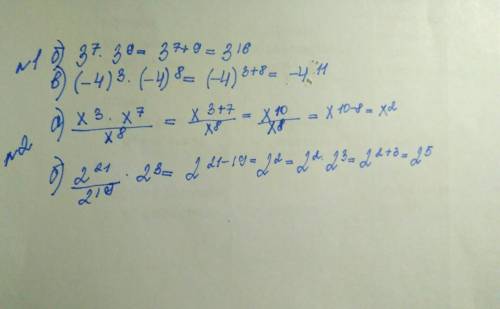 №1 б) 3⁷ · 3⁹ = 3⁷⁺⁹ = 3¹⁶
в) (-4)³ · (-4)⁸ = (-4)³⁺⁸ = -4¹¹
№2 а) x³ · x⁷ / x⁸ = x³⁺⁷ / x⁸ = x¹⁰ / x⁸ = x¹⁰⁻⁸ = x²
б) 2²¹ / 2¹⁹ · 2³ = 2²¹⁻¹⁹ = 2² = 2² · 2³ = 2²⁺³ = 2⁵